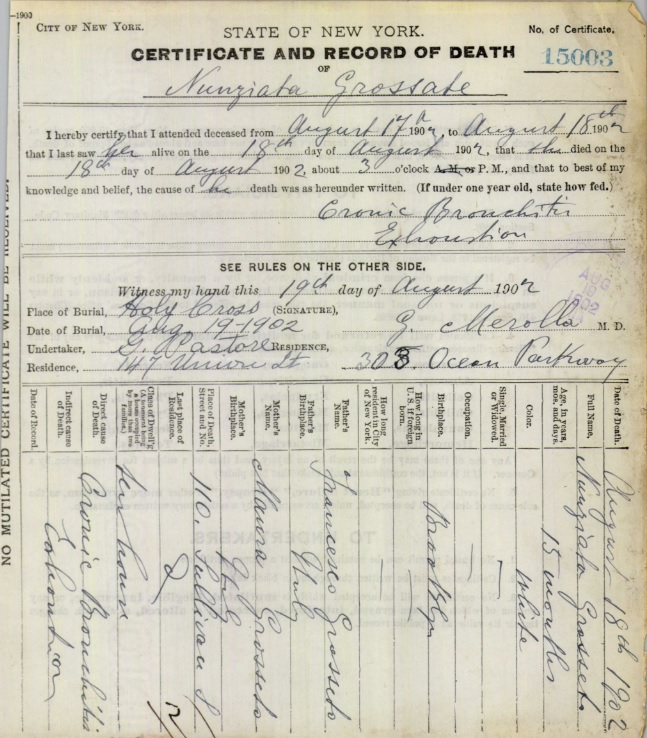 —1900
CITY OF NEW YORK.
STATE OF NEW YORK.
No. of Certificate.
CERTIFICATE AND RECORD OF DEATH
15003
OF
Nunziata Grossate
I hereby certify that I attended deceased from August 17th 1902, to August 18th 1902
that I last saw her alive on the 18th day of August 1902, that she died on the
18th day of August 1902, about 3 o'clock A.M. or P. M., and that to best of my
knowledge and belief, the cause of he death was as hereunder written. (If under one year old, state how fed.)
Cronic Bronchitis
Exhoustion
SEE RULES ON THE OTHER SIDE.
Witness my hand this 19th day of August 1902
Place of Burial, Holy Cross (SIGNATURE), G. Merolla M. D.
Date of Burial, Aug 19-1902
Undertaker, G. Pastore RESIDENCE, 305. Ocean Parkway
Residence, 147 Union St.
NO MUTILATED CERTIFICATE WILL BE RECEIVED.
Date of Death. August 18th 1902
Full Name, Nunziata Grosseto
Age, in years, mos. and days. 15 months
Color. white
Single, Married or Widowed.
Occupation.
Birthplace. Brooklyn
How long in U. S. if foreign born.
How long resident in City of New York.
Father's Name. Francesco Grosseto
Father's Birthplace.
Mother's Name. Grosseto
Mother's Birthplace.
Place of Death, Street and No. 110. Sullivan S
Last place of Residence.
Class of Dwell'g (A tenement being a house occupied by more than two families.) Ten house
Direct cause of Death. Cronic Bronchitis
Indirect cause of Death. Exhoustion
Date of Record.